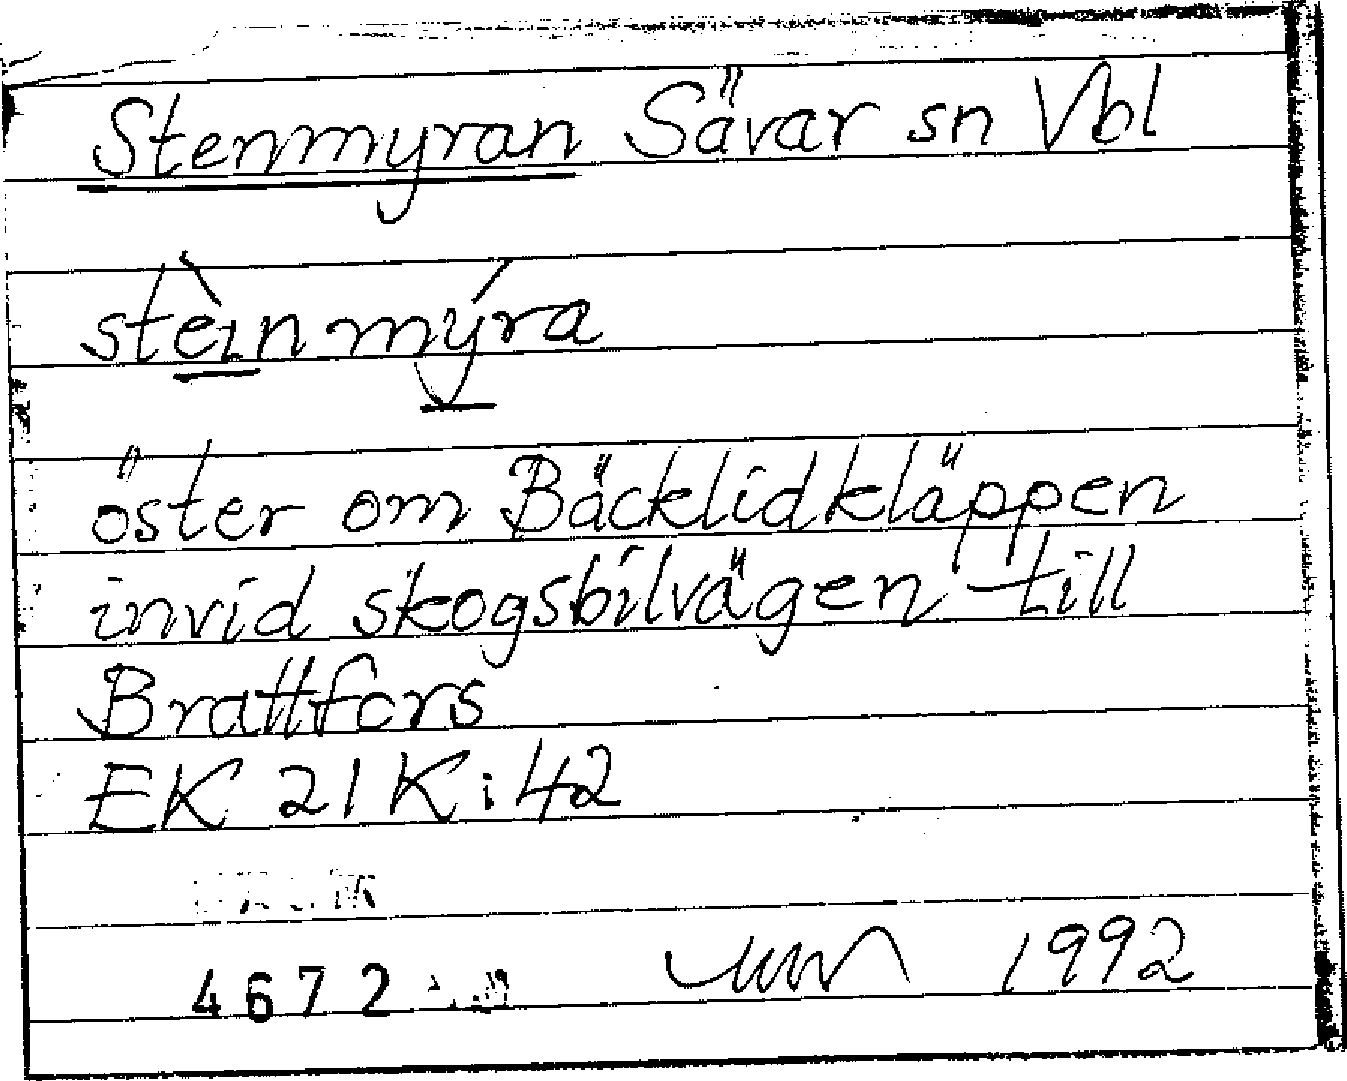 Stenmyran Sävar sn Vbl
stèınmýra
öster om Bäcklidkläppen
invid skogsbilvägen till
Brattfors
EK 21 K:42
4672
1992